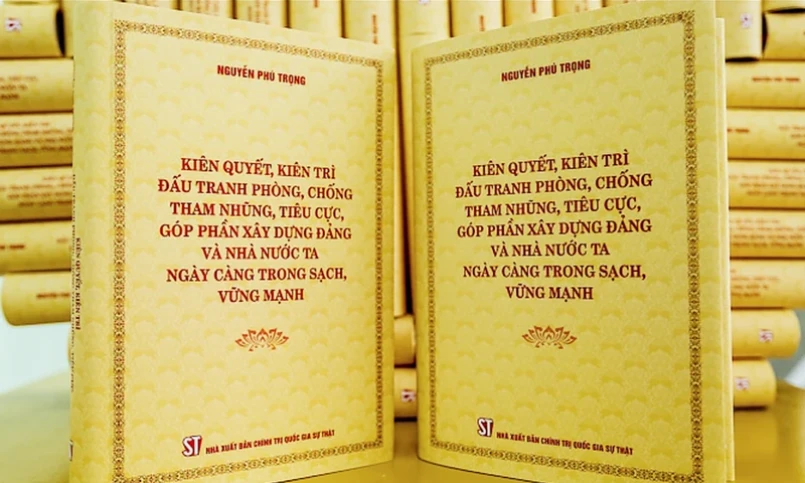 NGUYỄN PHÚ TRỌNG
KIÊN QUYẾT, KIÊN TRÌ
ĐẤU TRANH PHÒNG, CHỐNG
THAM NHŨNG, TIÊU CỰC,
GÓP PHẦN XÂY DỰNG ĐẢNG
VÀ NHÀ NƯỚC TA
NGÀY CÀNG TRONG SẠCH,
VỮNG MẠNH
ST
NHÀ XUẤT BẢN CHÍNH TRỊ QUỐC GIA SỰ THẬT
KIÊN QUYẾT, KIÊN TRÌ
NGUYỄN PHÚ TRỌNG
KIÊN QUYẾT, KIÊN TRÌ
ĐẤU TRANH PHÒNG, CHỐNG
THAM NHŨNG, TIÊU CỰC,
GÓP PHẦN XÂY DỰNG ĐẢNG
VÀ NHÀ NƯỚC TA
NGÀY CÀNG TRONG SẠCH,
VỮNG MẠNH
ST
NHÀ XUẤT BẢN CHÍNH TRỊ QUỐC GIA SỰ THẬT